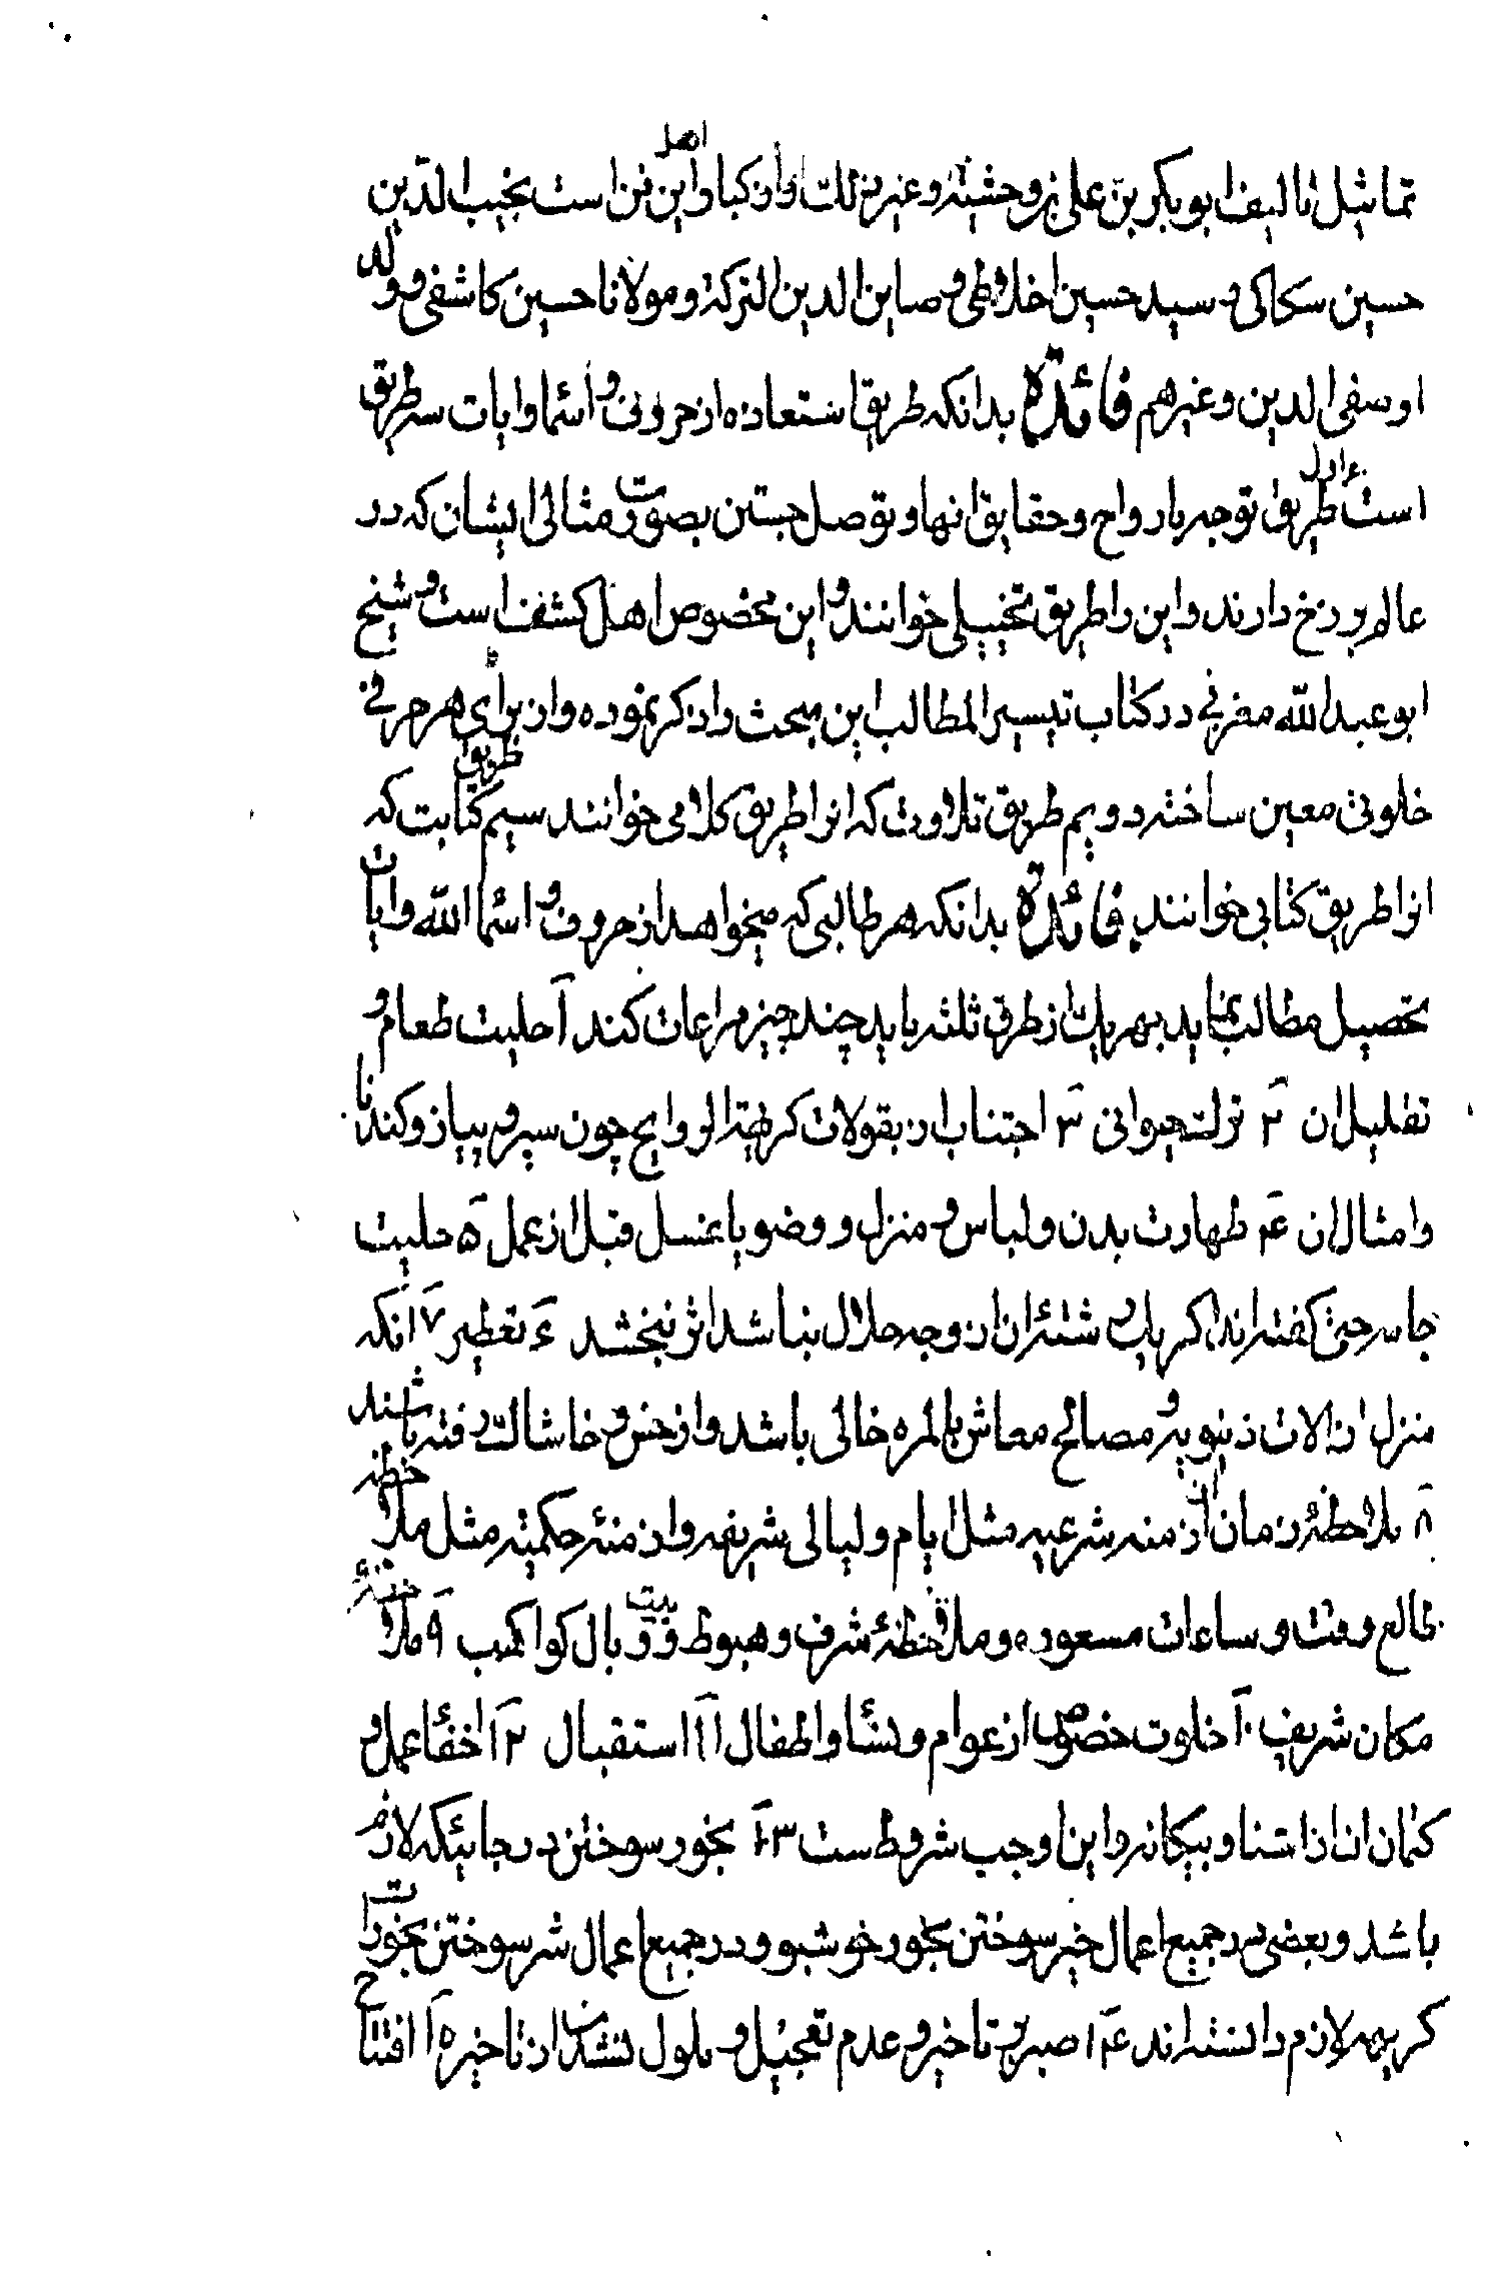 تماثیل تالیف ابوبکر بن علی بن وحشیته و غیر ذلك و از کبار اهل این فن است نجیب الدین
حسین سکاکی و سید حسین اخلاطی و صاین الدین الترکه و مولانا حسین کاشفی و ولد
او صفی الدین و غیرهم فائدة بدانکه طریق استعاذه از حروف و اسما و ایات سه طریق
است اول طریق توجه بارواح و حقایق انها و توصل جستن بصورت مثالی ایشان که در
عالم برزخ دارند و این را طریق تخییلی خوانند و این مخصوص اهل کشف است و شیخ
ابو عبدالله مغربی در کتاب تیسیر المطالب این مبحث را ذکر نموده و از برای هر حرفی
خلوتی معین ساخته دویم طریق تلاوت که انرا طریق کلامی خوانند سیم طریق کتابت که
انرا طریق کتابی خوانند فائدة بدانکه هر طالبی که میخواهد از حروف و اسماالله و ایات
تحصیل مطالب نماید بهر یك از طرق ثلثه باید چند چیز مراعات کند ١ حلیت طعام و
تقلیل ان ٢ ترك حیوانی ٣ اجتناب از بقولات کریهة الروایح چون سیر و پیاز و کندنا
و امثال ان ۴ طهارت بدن و لباس و منزل و وضو یا غسل قبل از عمل ۵ حلیت
جامه حتی گفته اند اگر یك رشته ان از وجه حلال نباشد اثر نبخشد ۶ تعطیر ٧ انکه
منزل از الات دنیویه و مصالح معاش بالمره خالی باشد و از خس و خاشاك رفته باشند
٨ ملاحظه زمان از ازمنه شرعیه مثل ایام و لیالی شریفه و ازمنه حکمیته مثل ملاحظه
طالع وقت و ساعات مسعوده و ملاحظهٔ شرف و هبوط و بیت و وبال کواکب ٩ ملاحظهٔ
مکان شریف ١٠ خلوت خصوص از عوام و نسا و اطفال ١١ استقبال ١٢ اخفاء عمل و
کتمان ان از اشنا و بیکانه و این اوجب شروطست ١٣ بخور سوختن در جائیکه لازم
باشد و بعضی در جمیع اعمال خیر سوختن بخور خوشبو و در جمیع اعمال شر سوختن بخورات
کریهه لازم دانسته اند ١۴ صبر بر تاخیر و عدم تعجیل و ملول نشدن از تاخیر ١۵ افتتاح